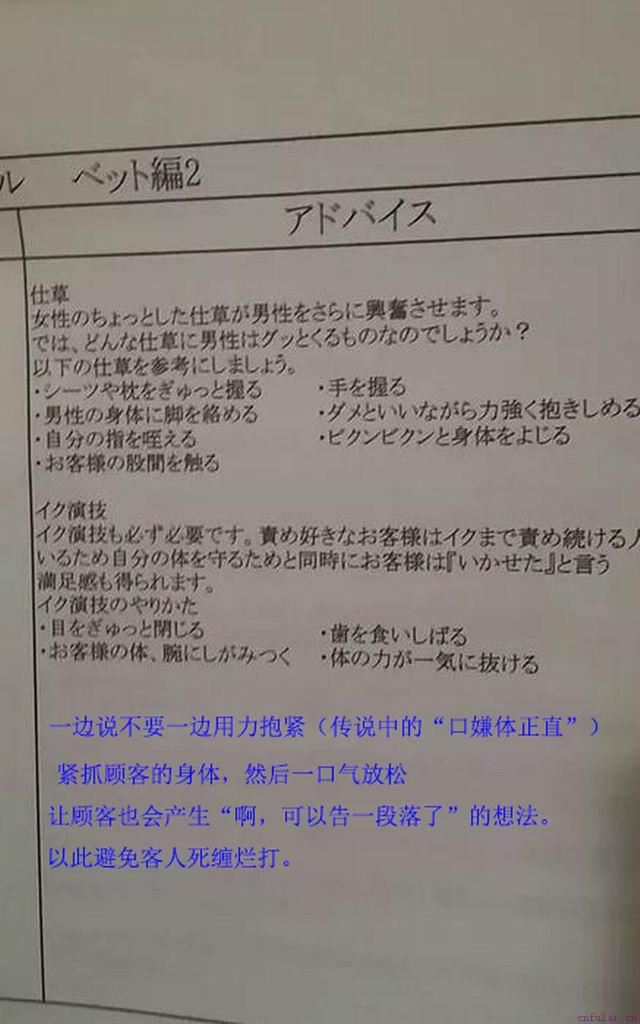 ル ベット編2
アドバイス
仕草
女性のちょっとした仕草が男性をさらに興奮させます。
では、どんな仕草に男性はグッとくるものなのでしょうか?
以下の仕草を参考にしましょう。
・シーツや枕をぎゅっと握る ・手を握る
・男性の身体に脚を絡める ・ダメといいながら力強く抱きしめる
・自分の指を咥える ・ビクンビクンと身体をよじる
・お客様の股間を触る
イク演技
イク演技も必ず必要です。責め好きなお客様はイクまで責め続ける人
いるため自分の体を守るためと同時にお客様は『いかせた』と言う
満足感も得られます。
イク演技のやりかた
・目をぎゅっと閉じる ・歯を食いしばる
・お客様の体、腕にしがみつく ・体の力が一気に抜ける
一边说不要一边用力抱紧(传说中的“口嫌体正直”)
紧抓顾客的身体,然后一口气放松
让顾客也会产生“啊,可以告一段落了”的想法。
以此避免客人死缠烂打。
cnfulai.cn